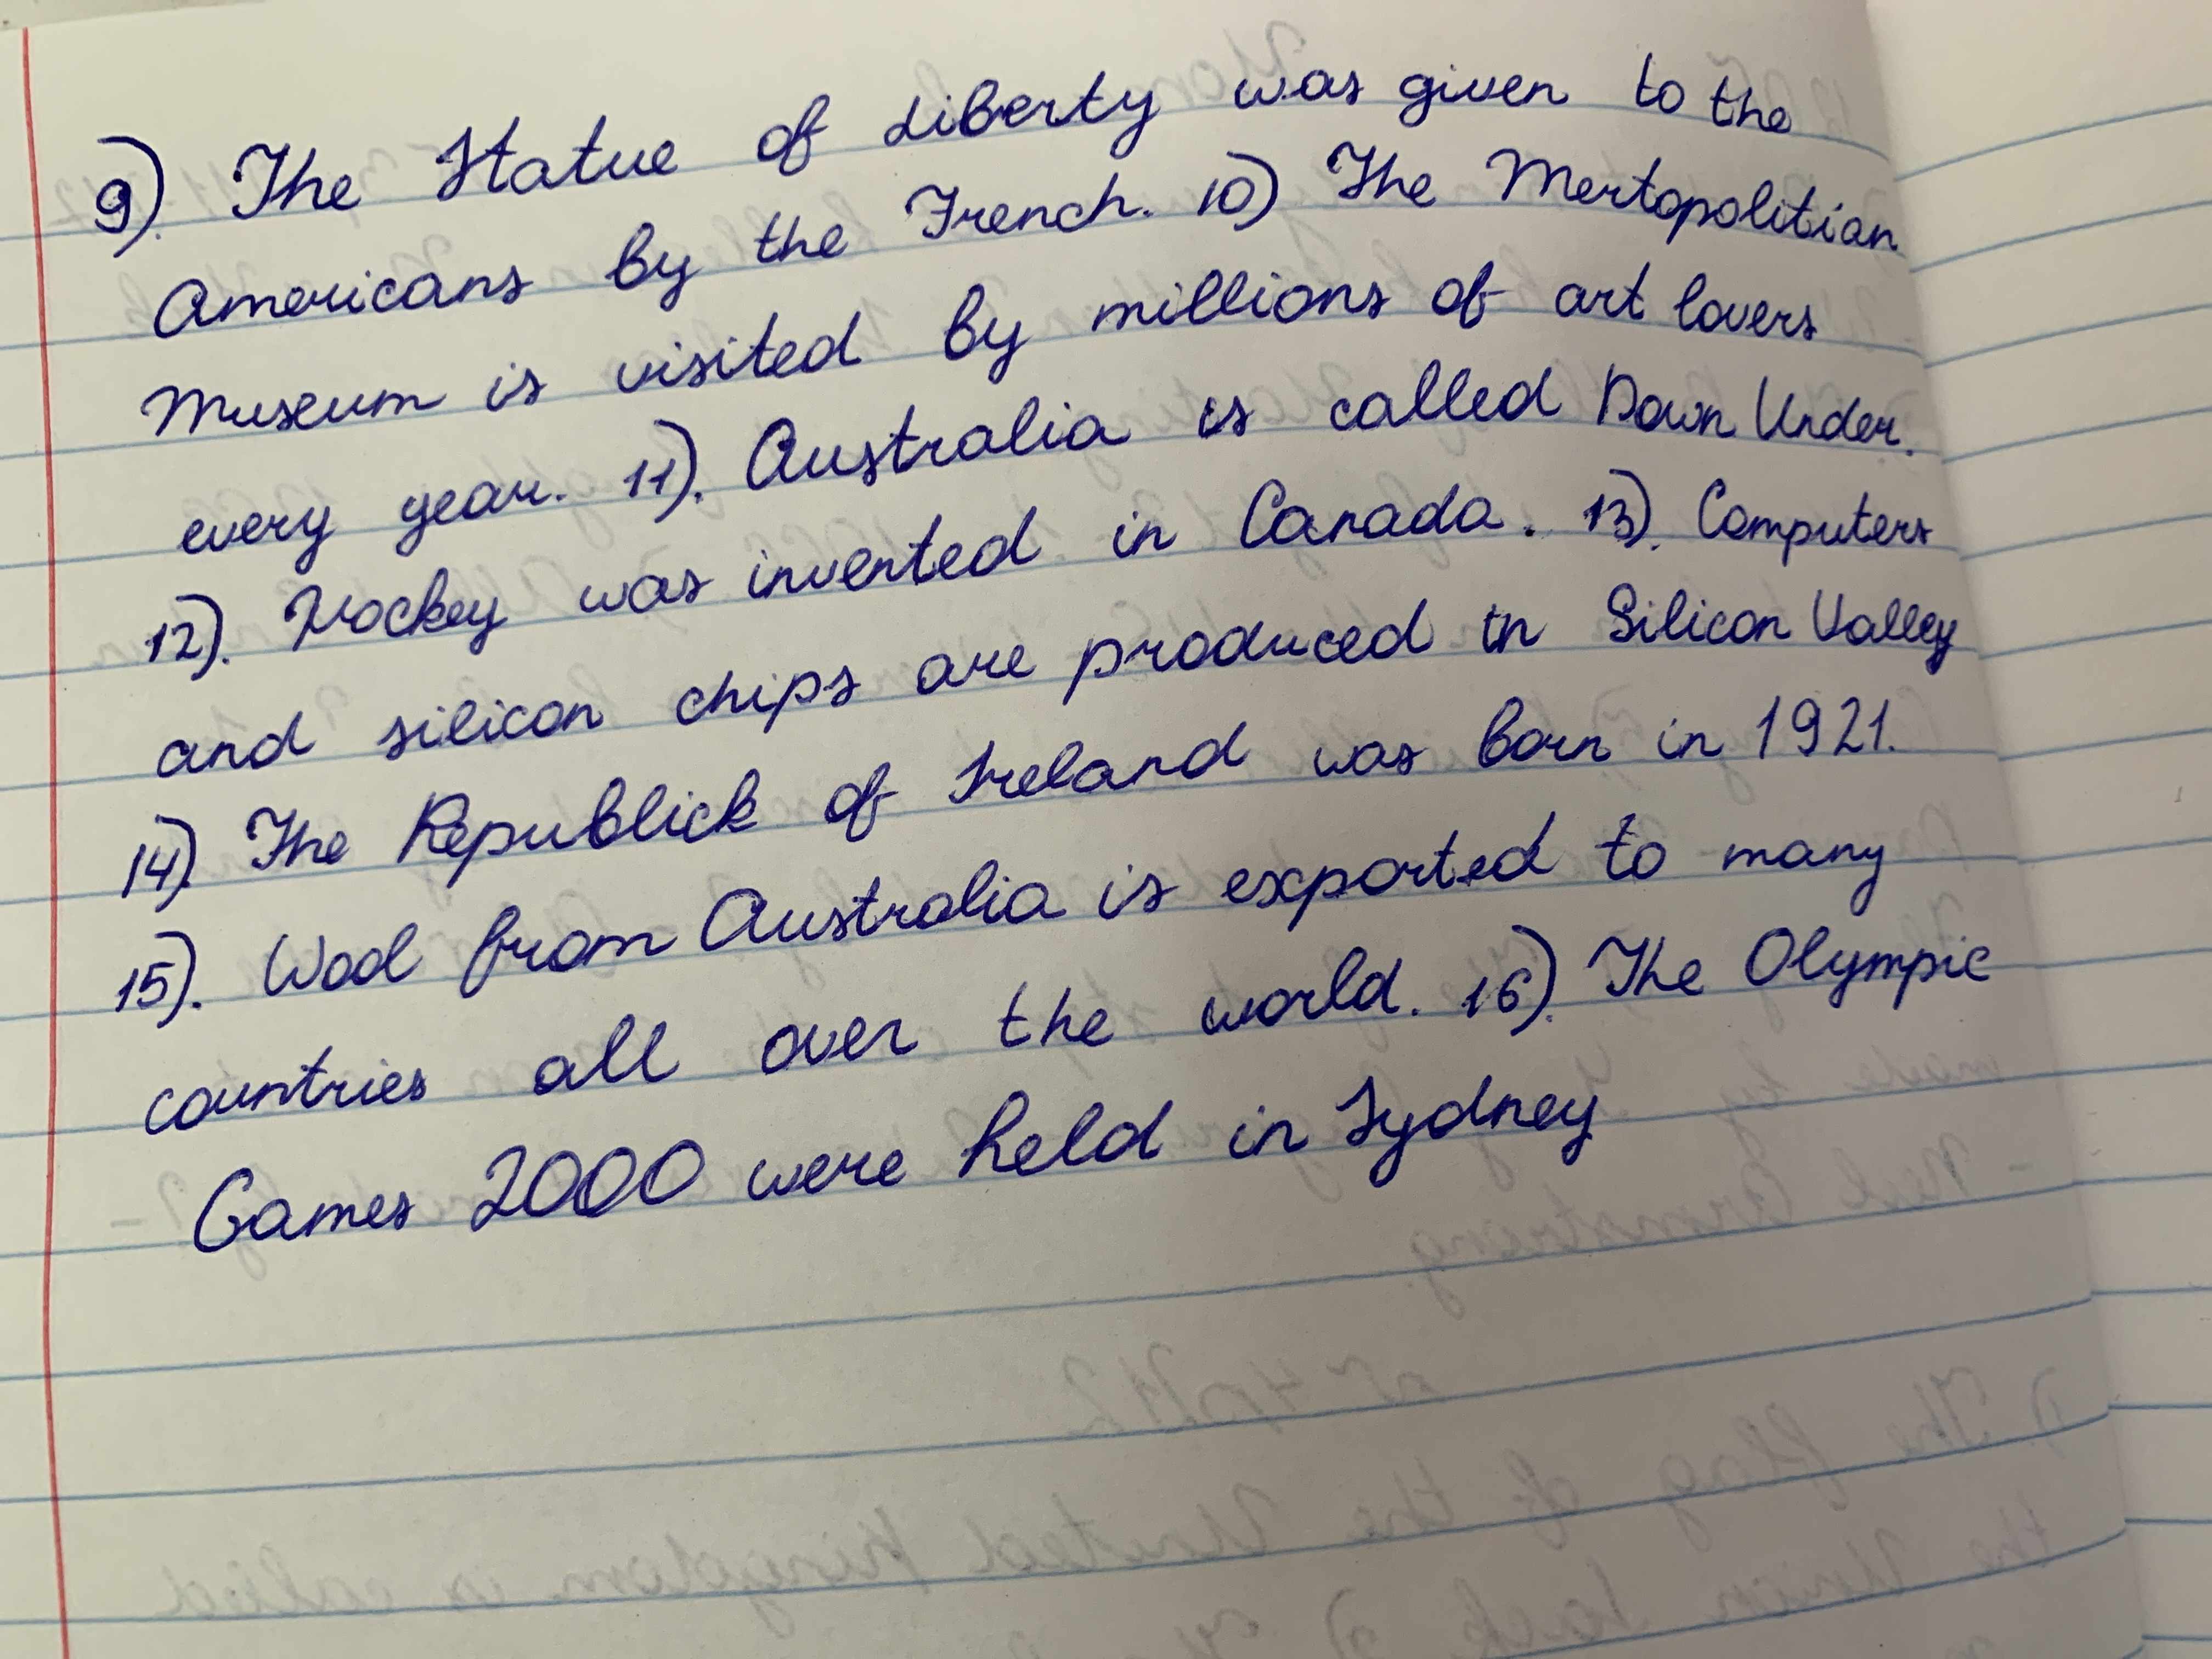 9). The Statue of Liberty was given to the
Americans by the French. 10) The Mertopolitian
Museum is visited by millions of art lovers
every year. 11). Australia is called Down Under.
12). Hockey was invented in Canada. 13). Computers
and silicon chips are produced in Silicon Valley
14). The Republick of Ireland was born in 1921.
15). Wool from Australia is exported to many
countries all over the world. 16). The Olympic
Games 2000 were held in Sydney